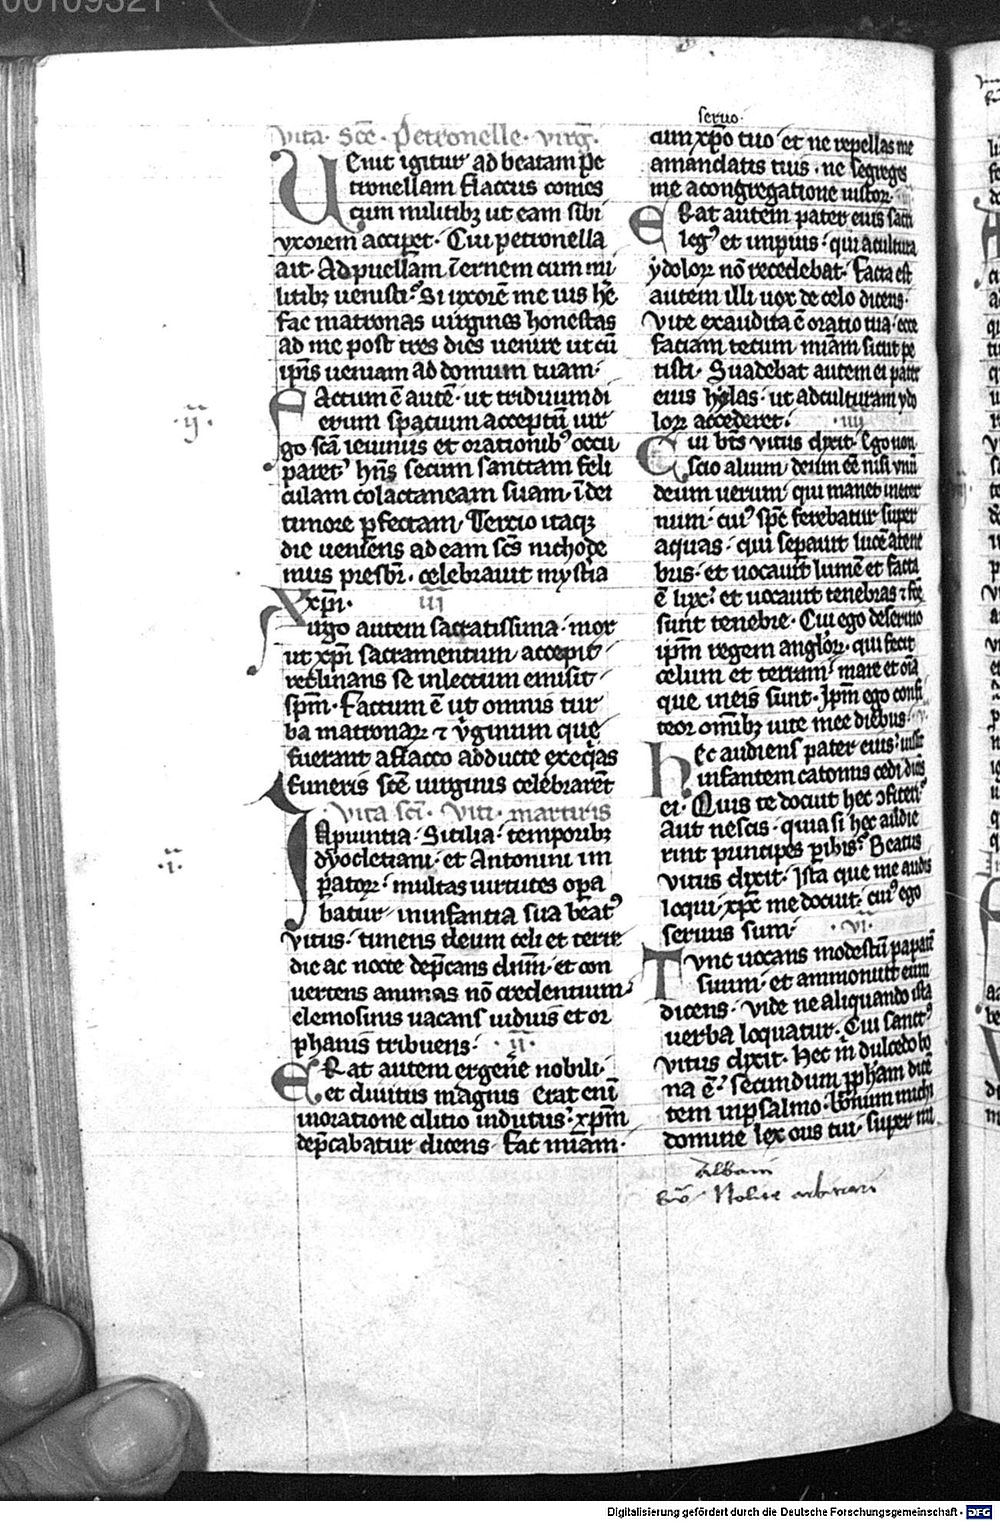 00109321
vita. Sc̄e. Petronelle. virḡ.
Uenit igitur ad beatam pe
tronellam flaccus comes
cum militibꝫ ut eam sibi
vxorem acciꝑet. Cui petronella
ait. Ad puellam īermem cum mi
litibꝫ uenisti. Si uxorē me uis hr̄e
fac matronas uirgines honestas
ad me post tres dies uenire ut cū
ip̄is ueniam ad domum tuam.
.ij.
Factum ē autē. ut triduum di
erum spacium acceptū uir
go sc̄a ieiuniis et orationibꝰ occu
paretᷣ. hn̄s secum sanctam feli
culam colactaneam suam. ī dei
timore ꝑfectam. Tercio itaqꝫ
die ueniens ad eam sc̄s nichode
mus presbr̄. celebrauit mystia
xp̄i. iii
Uirgo autem sacratissima. mox
ut xp̄i sacramentum accepit
reclinans se in lectum emisit
sp̄m. Factum ē ut omnis tur
ba matronaꝝ ⁊ v̓ginum que
fuerant a flacco adducte exeq̓as
funeris sc̄e uirginis celebrarēt
vita sc̄i. Viti. martiris
.i.
IApiuntia. Sicilia. temporibꝫ
dyocletiani. et Antonini im
ꝑatoꝝ. multas uirtutes oꝑa
batur in infantia sua beatꝰ
vitus. timens deum celi et terre
die ac nocte dep̄cans dn̄m. et con
uertens animas nō credentium
elemosinis uacans uiduis et or
phanis tribuens. .ii.
ERat autem ex gen̄e nobili.
et diuitiis magnis erat enī
in oratione cilitio indutus. xp̄m
dep̄cabatur dicens. Fac miām.
seruo.
cum xp̄o tuo et ne repellas me
a mandatis tuis. ne segreges
me a congregatione iustoꝝ. iii
ERat autem pater eius sacri
legꝰ et impius. qui a cultura
ydoloꝝ nō recedebat. Facta est
autem illi uox de celo dicens.
Vite exaudita ē oratio tua. ecce
faciam tecum miām sicut pe
tisti. Suadebat autem ei pater
eius hylas. ut ad culturam ydo
loꝝ accederet. .iiii.
Cui bt̄s vitus dixit. Ego non
scio alium deum eē nisi vnū
deum uerum. qui manet in eter
num. cuiꝰ sp̄c ferebatur super
aquas. qui separuit lucē a tene
bris. et uocauit lumē et facta
ē lux. et uocauit tenebras ⁊ fc̄e
sunt tenebre. Cui ego deseruio
ip̄m regem angloꝝ. qui fecit
celum et terram. mare et oīa
que in eis sunt. Ip̄m ego confi
teor omībꝫ vite mee diebus. .v.
Hec audiens pater eius. iussit
infantem catomis cedi dicēs
ei. Quis te docuit hec ꝯfiteri.
Aut nescis. quia si hec audie
rint principes ꝑibis. Beatus
vitus dixit. Ista que me audis
loqui. xp̄c me docuit. cuiꝰ ego
seruus sum. .vi.
Tunc uocans modestū papatē
suum. et ammonuit eum
dicens. Vide ne aliquando ista
uerba loquatur. Cui sanctꝰ
vitus dixit. Hec m̄ dulcedo bo
na ē. secundum ꝓpham dicē
tem in psalmo. bonum michi
domine lex oris tui. super mi
Albani
Eu̅. Nolite arbitrari
Digitalisierung gefördert durch die Deutsche Forschungsgemeinschaft - DFG